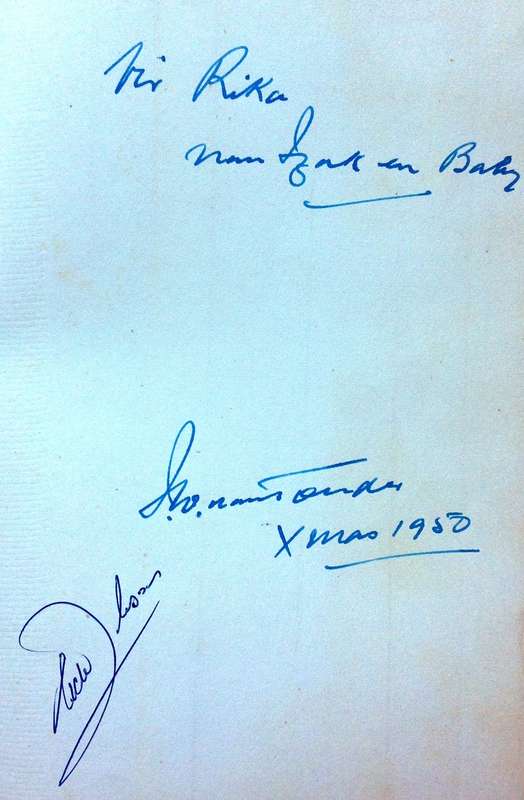 Vir Rika
van Izak en Baby
I.W. van Tonder
Xmas 1950